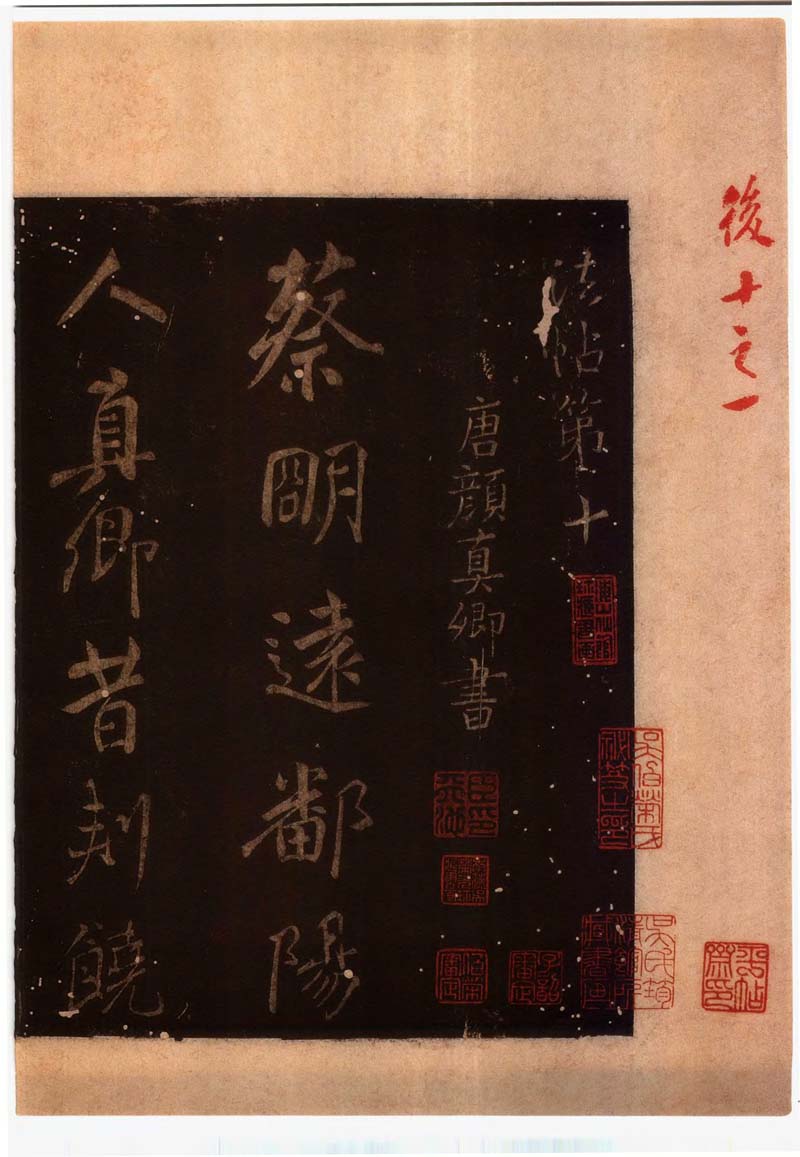 後十之一
法帖第十
唐顏真卿書
蔡明遠鄱陽
人真卿昔刺饒